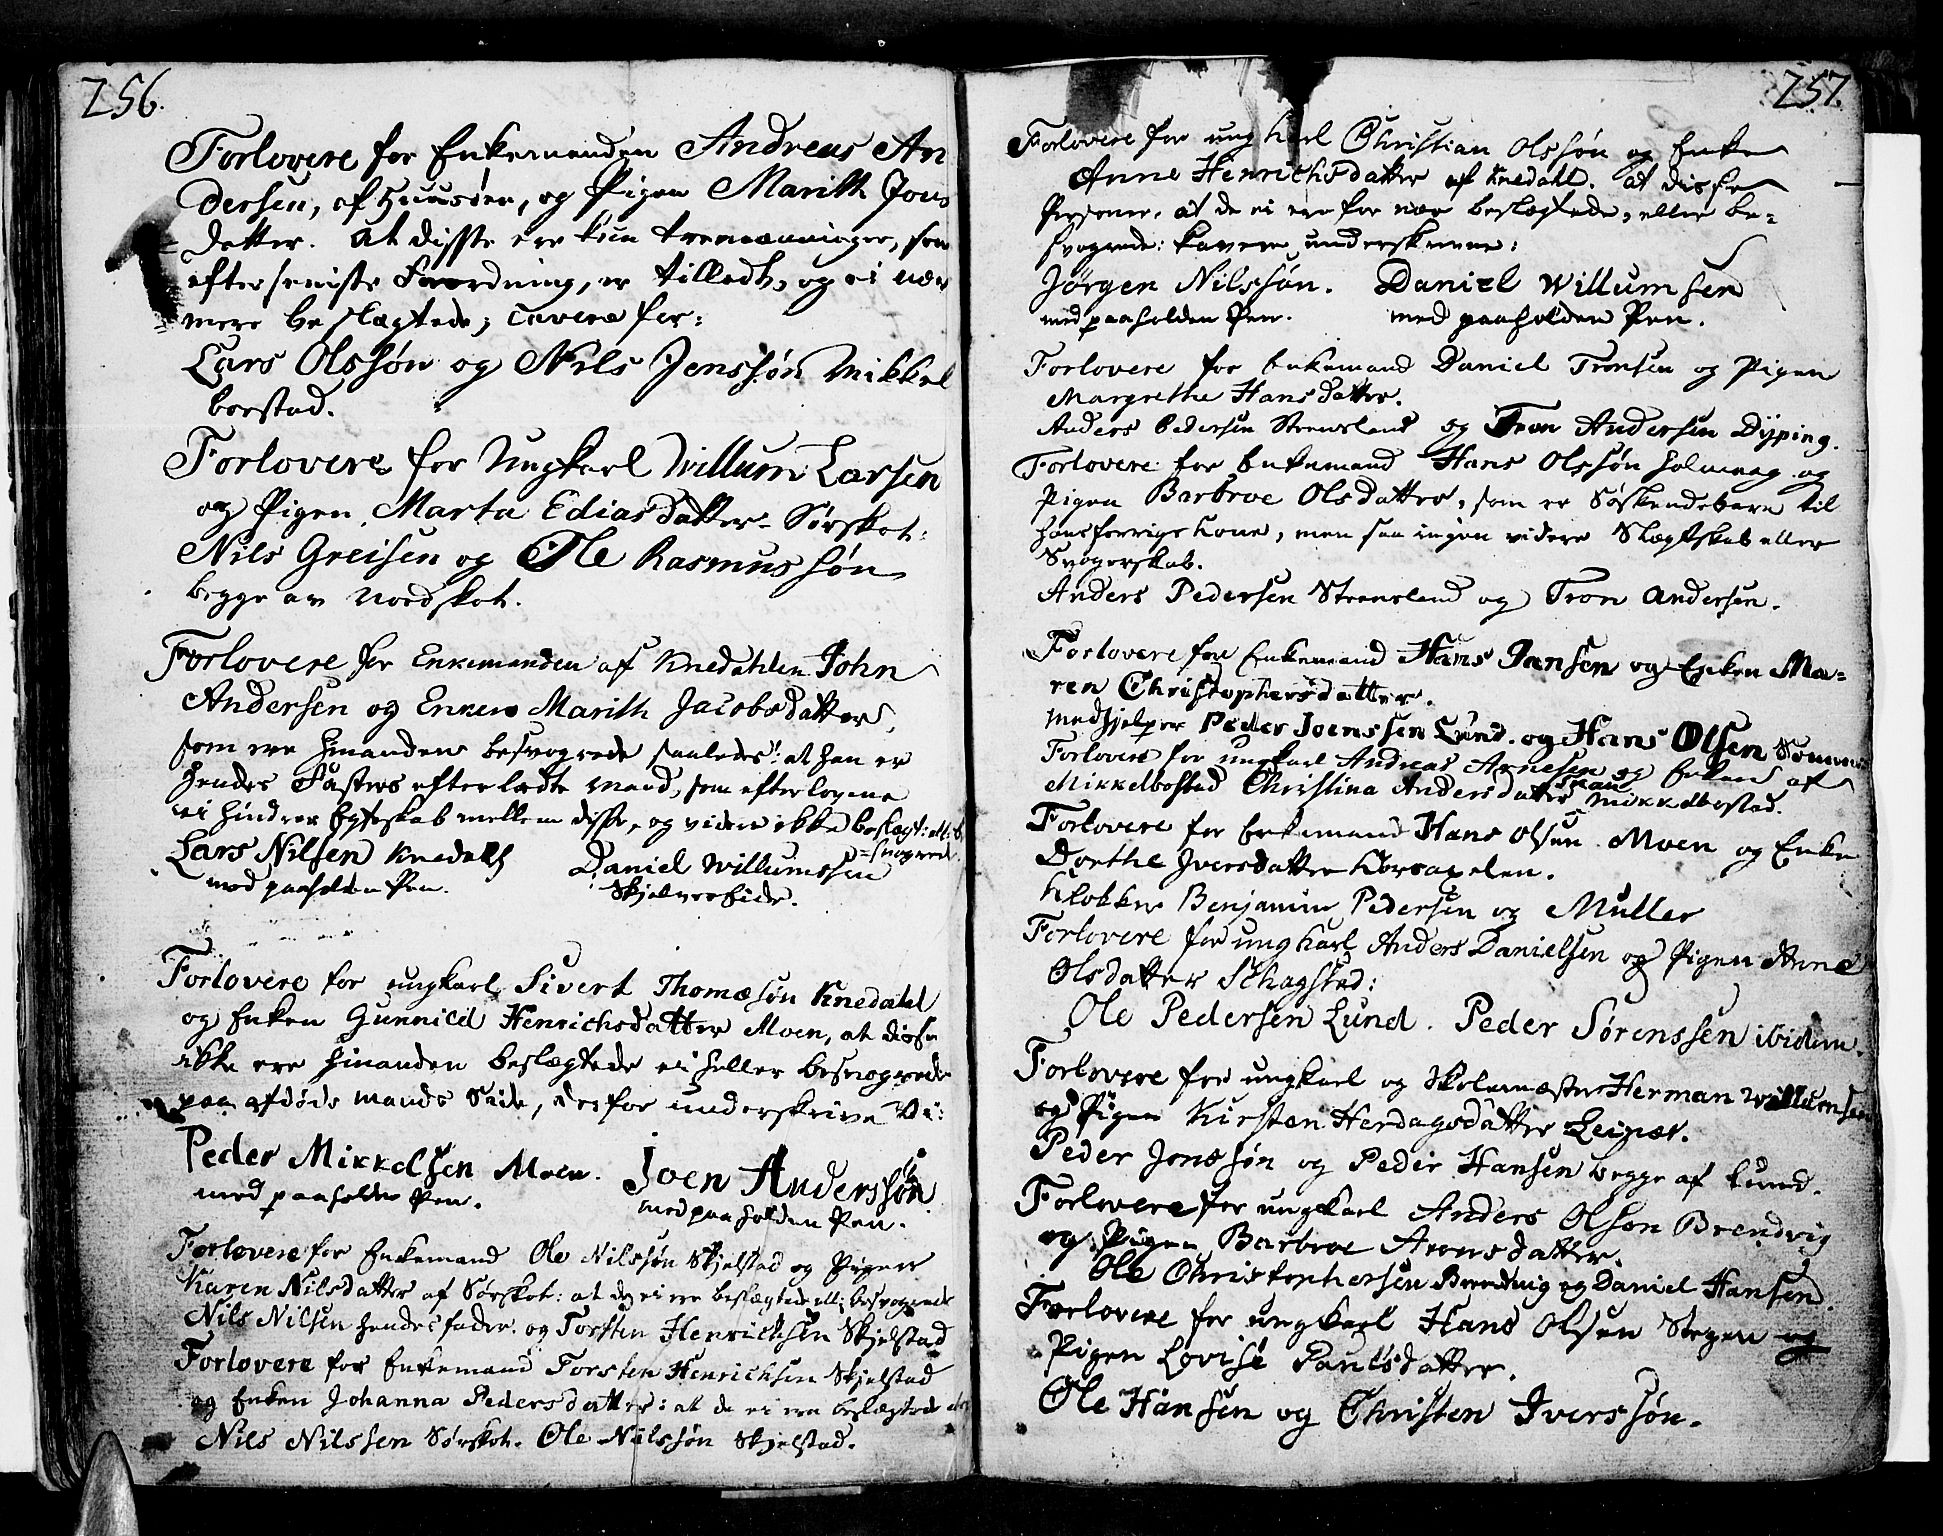 256.
Forlovere for Enkemanden Andreas An
dersen, af Huusøen, og Pigen Marith Jons
datter. At disse ere kun tremænninger, som
efter seniste Forordning, er tilladt, og ei nær
mere beslægtede; Cavere for:
Lars Olssøn og Nils Jenssøn Mikkel
borstad.
Forlovere for Ungkarl Willum Larsen
og Pigen Marta Ediasdatter Sørskot:
Nils Greisen og Ole Rasmussøn
begge av Nordskot.
Forlovere for Enkemanden af Knedahlen John
Andersen og Enken Marith Jacobsdatter,
som ere hinanden besvogrede saaledes: at han er
hendes Fasters efterladte Mand, som efter lovene
ei hindrer Egteskab mellem disse, og videre ikke beslægt: ell: be
=svogrede
Lars Nilsen Knedahl Daniel Willumssen
med paaholden Pen. Skjelvereide.
Forlovere for ungkarl Sivert Thomæsøn Knedahl
og Enken Gunnild Henrichsdatter Moen, at disse
ikke ere hinanden beslægtede ei heller besvogrede
paa afdøde Mands Side, derfor underskrive Vi:
Peder Mikkelsen Moen. Joen Anderssøn
med paaholden Pen. med paaholden Pen.
Forlovere for Enkemand Ole Nilssøn Skjelstad og Pigen
Karen Nilsdatter af Sørskot: at de ei ere beslægtede ell: besvogrede
Nils Nilsen hendes fader og Torsten Henrichsen Skjelstad
Forlovere for Enkemand Torsten Henrichsen Skjelstad
og Enken Johanna Pedersdatter: at de ei ere beslægtede
Nils Nilssen Sørskot. Ole Nilssøn Skjelstad.
257.
Forlovere for ungkarl Christian Olssøn og Enke
Anne Henrichsdatter af Knedall. At disse
Personer, at de ei ere for nær beslægtede, eller be-
svogrede: kavere underskrevne:
Jørgen Nilssøn. Daniel Willumsen
med paaholden Pen. med paaholden Pen.
Forlovere for Enkemand Daniel Tronsen og Pigen
Margrethe Hansdatter.
Anders Pedersen Strensland og Tron Andersen Dyping.
Forlovere for Enkemand Hans Olssøn Holmaag og
Pigen Barbroe Olsdatter, som er Søskendebarn til
hans forrige Kone, men saa ingen videre Slægtskab eller
Svogerskab.
Anders Pedersen Strensland og Tron Andersen.
Forlovere for Enkemand Hans Jansen og Enken Ma-
ren Christophersdatter.
Medhjelper Peder Joenssen Lund. og Hans Olsen
Forlovere for ungkarl Andreas Arnesen og Enken af
Mikkelbostad Christina Andersdatter Mikkelbostad.
Forlovere for Enkemand Hans Olsen Moen og Enke
Dorthe Iversdatter
Klokker Benjamin Pedersen og Muller
Forlovere for ungkarl Anders Danielsen og Pigen Anne
Olsdatter Schagstad:
Ole Pedersen Lund. Peder Sørenssen ibidem.
Forlovere for ungkarl og Skolemester Herman Willumsen
og Pigen Kirsten Herdagsdatter Leinæs.
Peder Jonssøn og Peder Hansen begge af Lund.
Forlovere for ungkarl Anders Olson Brendvig
og Pigen Barbroe Aronsdatter.
Ole Christophersen Brendvig og Daniel Hansen.
Forlovere for ungkarl Hans Olsen Stegen og
Pigen Lovise Paulsdatter.
Ole Hansen og Christen Iverssøn.